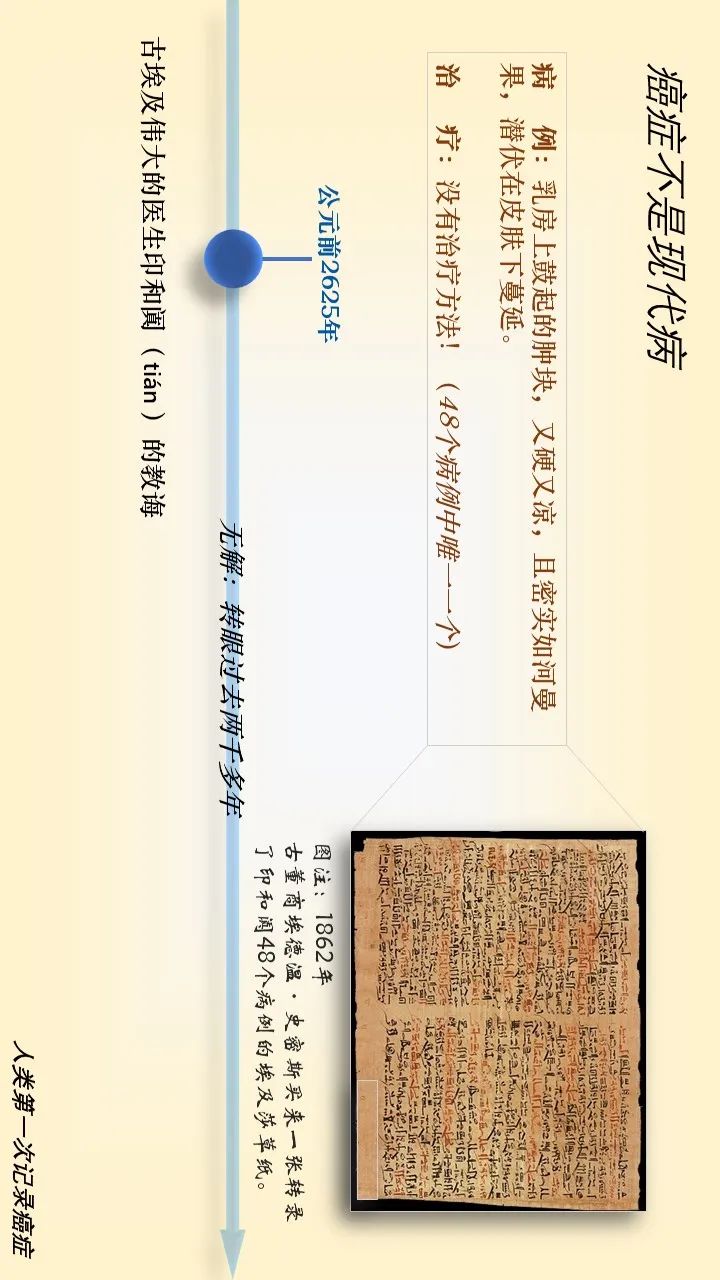 癌症不是现代病
病 例：乳房上鼓起的肿块，又硬又凉，且密实如河曼
果，潜伏在皮肤下蔓延。
治 疗：没有治疗方法！（48个病例中唯一一个）
公元前2625年
古埃及伟大的医生印和阗（tián）的教诲
无解：转眼过去两千多年
图注：1862年
古董商埃德温·史密斯买来一张转录
了印和阗48个病例的埃及莎草纸。
人类第一次记录癌症